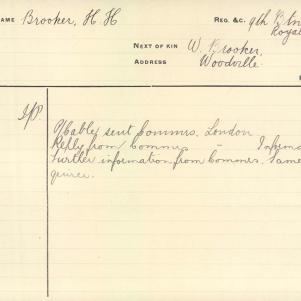 NAME Brooker, H. H
REG. &C. 9th Bln
Royal
NEXT OF KIN W. Brooker,
ADDRESS Woodville.
P/Cable, sent Commrs. London
Reply from Commrs " Inform
further information from Commrs. Same